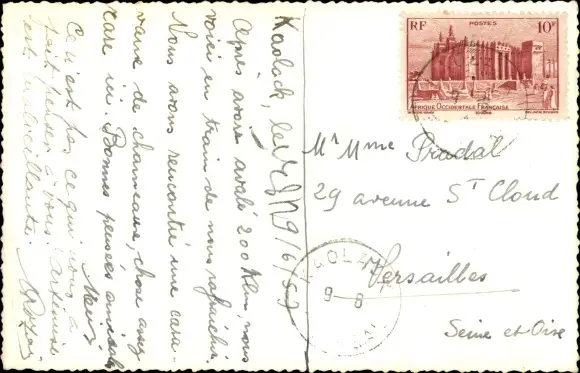 Kaolack, le 9/6/
Après avoir avalé 200 Klm, nous
voici en train de nous rafraîchir.
Nous avons rencontré une cara-
vane de chameaux, chose assez
rare ici. Bonnes pensées amicales
Ce n'est pas ce qui nous a
fait penser à vous.
est bienveillante.
RF
POSTES
10F
AFRIQUE OCCIDENTALE FRANÇAISE
Mr Mme Pradal
29 avenue St Cloud
Versailles
Seine et Oise
KAOLACK
9-6